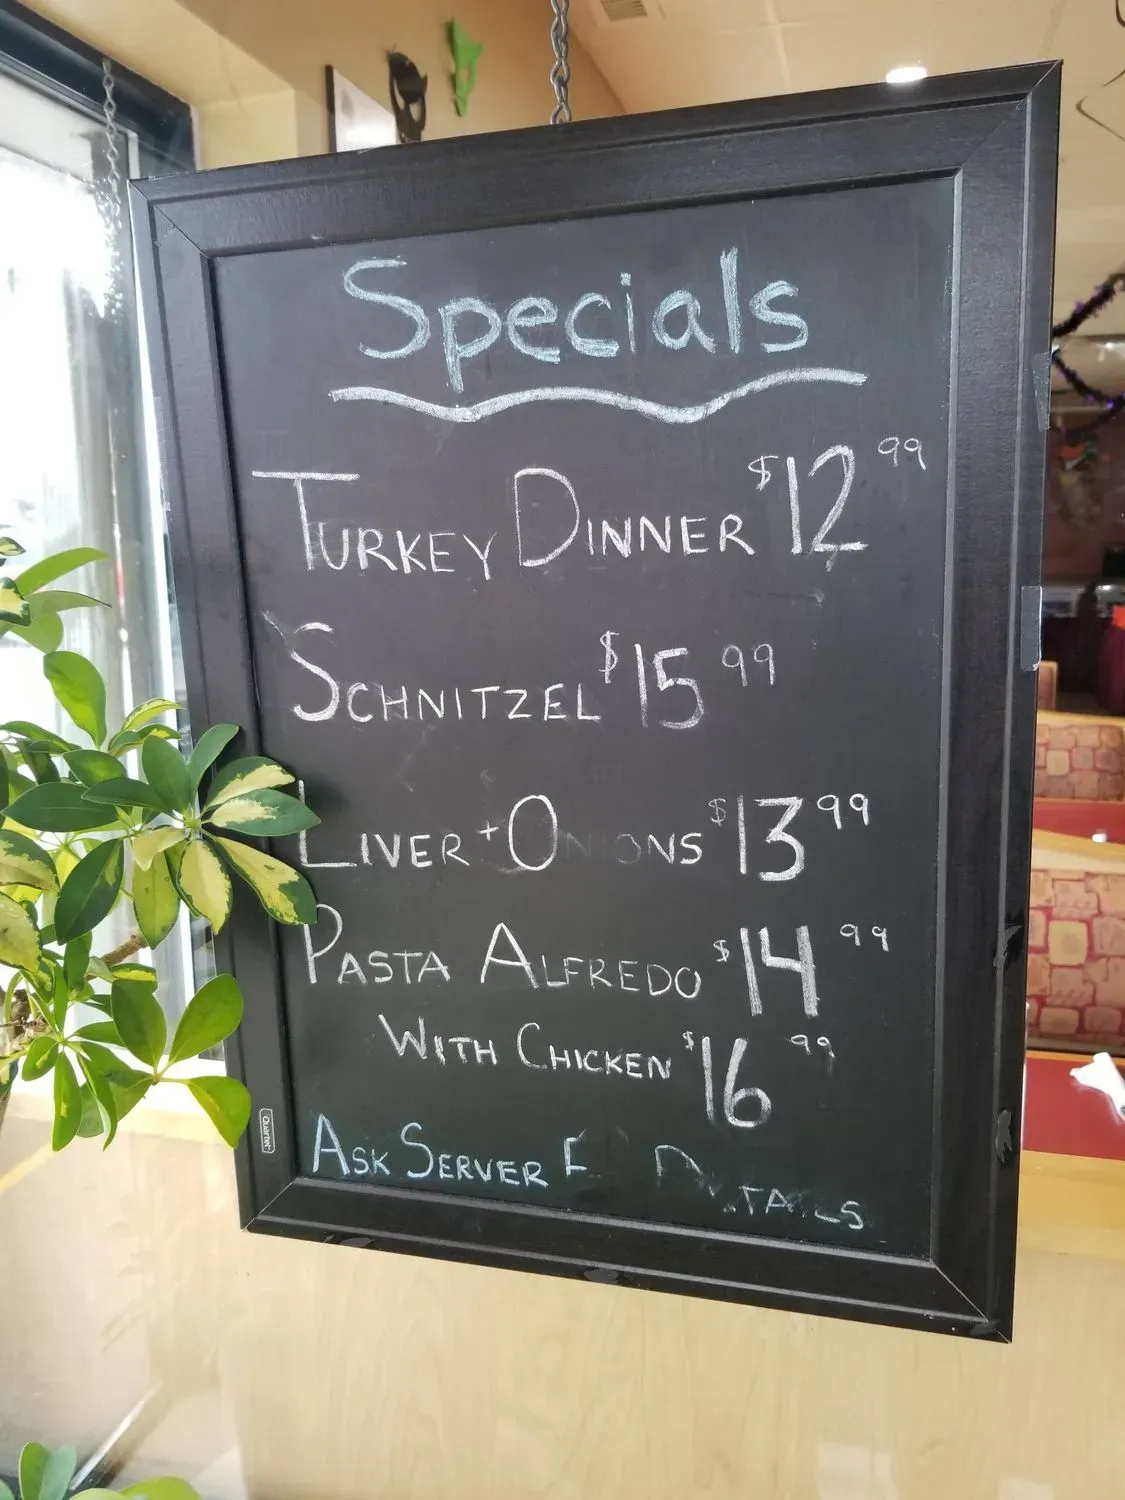 Specials
TURKEY DINNER $12.99
SCHNITZEL $15.99
LIVER + ONIONS $13.99
PASTA ALFREDO $14.99
WITH CHICKEN $16.99
ASK SERVER F DETAILS
Quartet